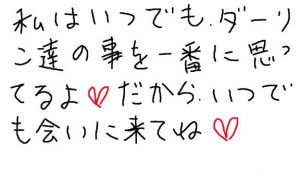 私はいつでも、ダーリ
ン達の事を一番に思っ
てるよ♡だから、いつで
も会いに来てね♡